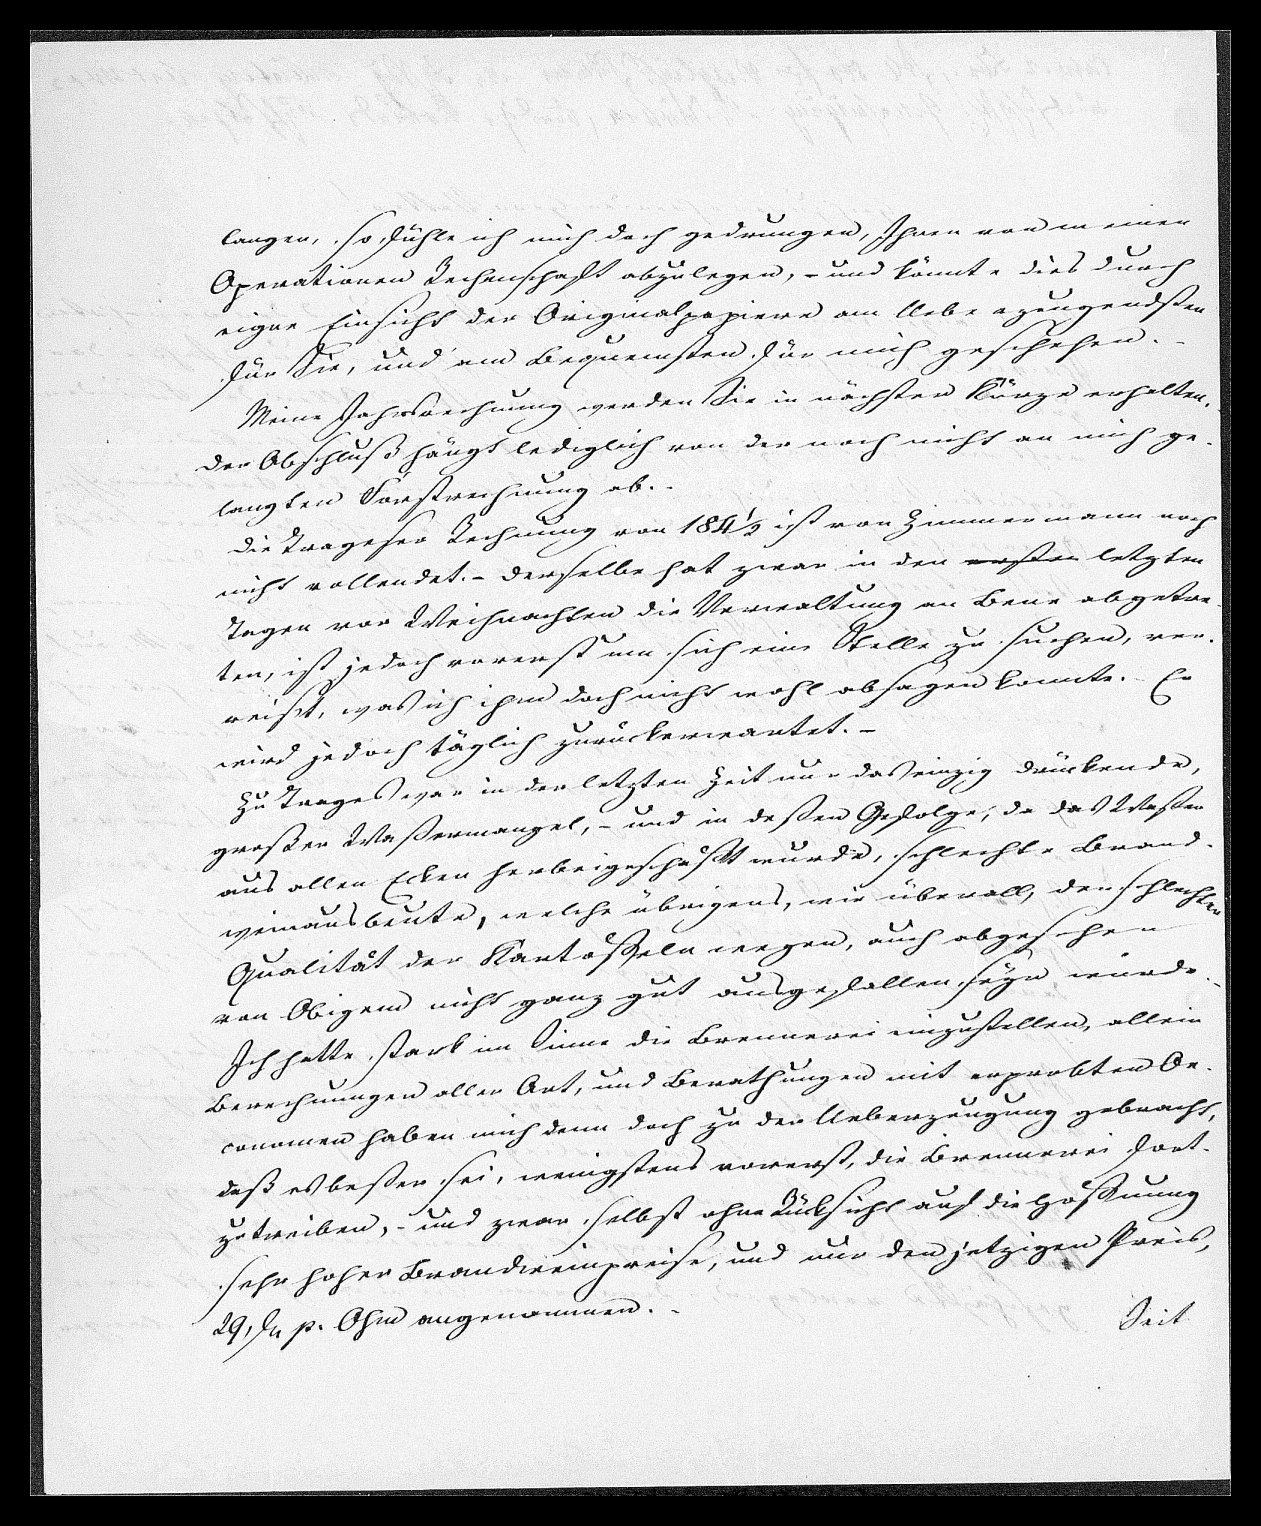 langen, so fühle ich mich doch gedrungen, Ihnen von meinen
Operationen Rechenschaft abzulegen, - und könnte dies durch
eigne Einsicht der Originalpapiere am Ueberzeugendsten
für Sie, und am Bequemsten für mich geschehen. -
Meine Jahrsrechnung werden Sie in nächster Kürze erhalten.
Der Abschluß hängt lediglich von der noch nicht an mich ge-
langten Forstrechnung ab. -
Die Trageser Rechnung von 184½ ist von Zimmermann noch
nicht vollendet. - Derselbe hat zwar in den ersten letzten
Tagen vor Weihnachten die Verwaltung an Bene abgetre-
ten, ist jedoch vorerst um sich eine Stelle zu suchen, ver-
reist, was ich ihm doch nicht wohl absagen konnte. Er
wird jedoch täglich zurückerwartet. -
Zu Trages war in der letzten Zeit nur das einzig drückende,
großer Waßermangel, - und in deßen Gefolge, da das Waßer
aus allen Ecken herbeigeschafft wurde, schlechte Brand-
weinausbeute, welche übrigens, wie überall, der schlechten
Qualität der Kartoffeln wegen, auch abgesehen
von Obigem nicht ganz gut ausgefallen seyn würde. -
Ich hatte stark im Sinne die Brennerei einzustellen, allein
Berechnungen aller Art, und Berathungen mit erprobten Oe-
conomen haben mich denn doch zu der Ueberzeugung gebracht,
daß es beßer sei, wenigstens vorerst, die Brennerei fort-
zutreiben, - und zwar selbst ohne Rücksicht auf die Hoffnung
sehr hoher Brandweinpreise, und nur den jetzigen Preis,
29, fn p. Ohm angenommen. -
Seit